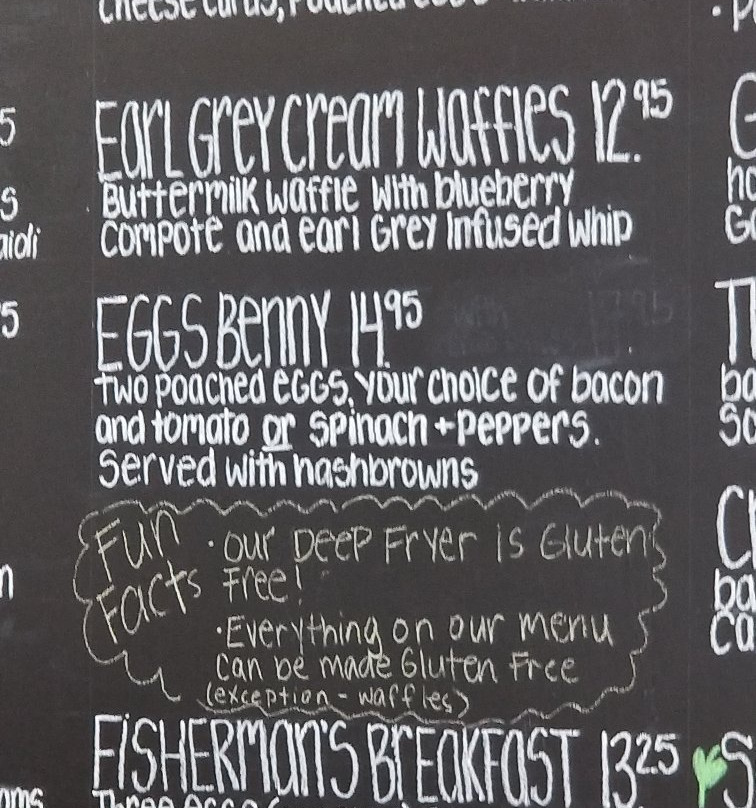 EARL GREY CREAM WAFFLES 12.95
Buttermilk waffle with blueberry
compote and earl Grey Infused whip
EGGS BENNY 14.95
two poached eggs, your choice of bacon
and tomato or spinach + peppers.
Served with hashbrowns
Fun Facts
· our Deep Fryer is Gluten
Free!
· Everything on our menu
can be made Gluten Free
(exception - waffles)
FISHERMAN'S BREAKFAST 13.25